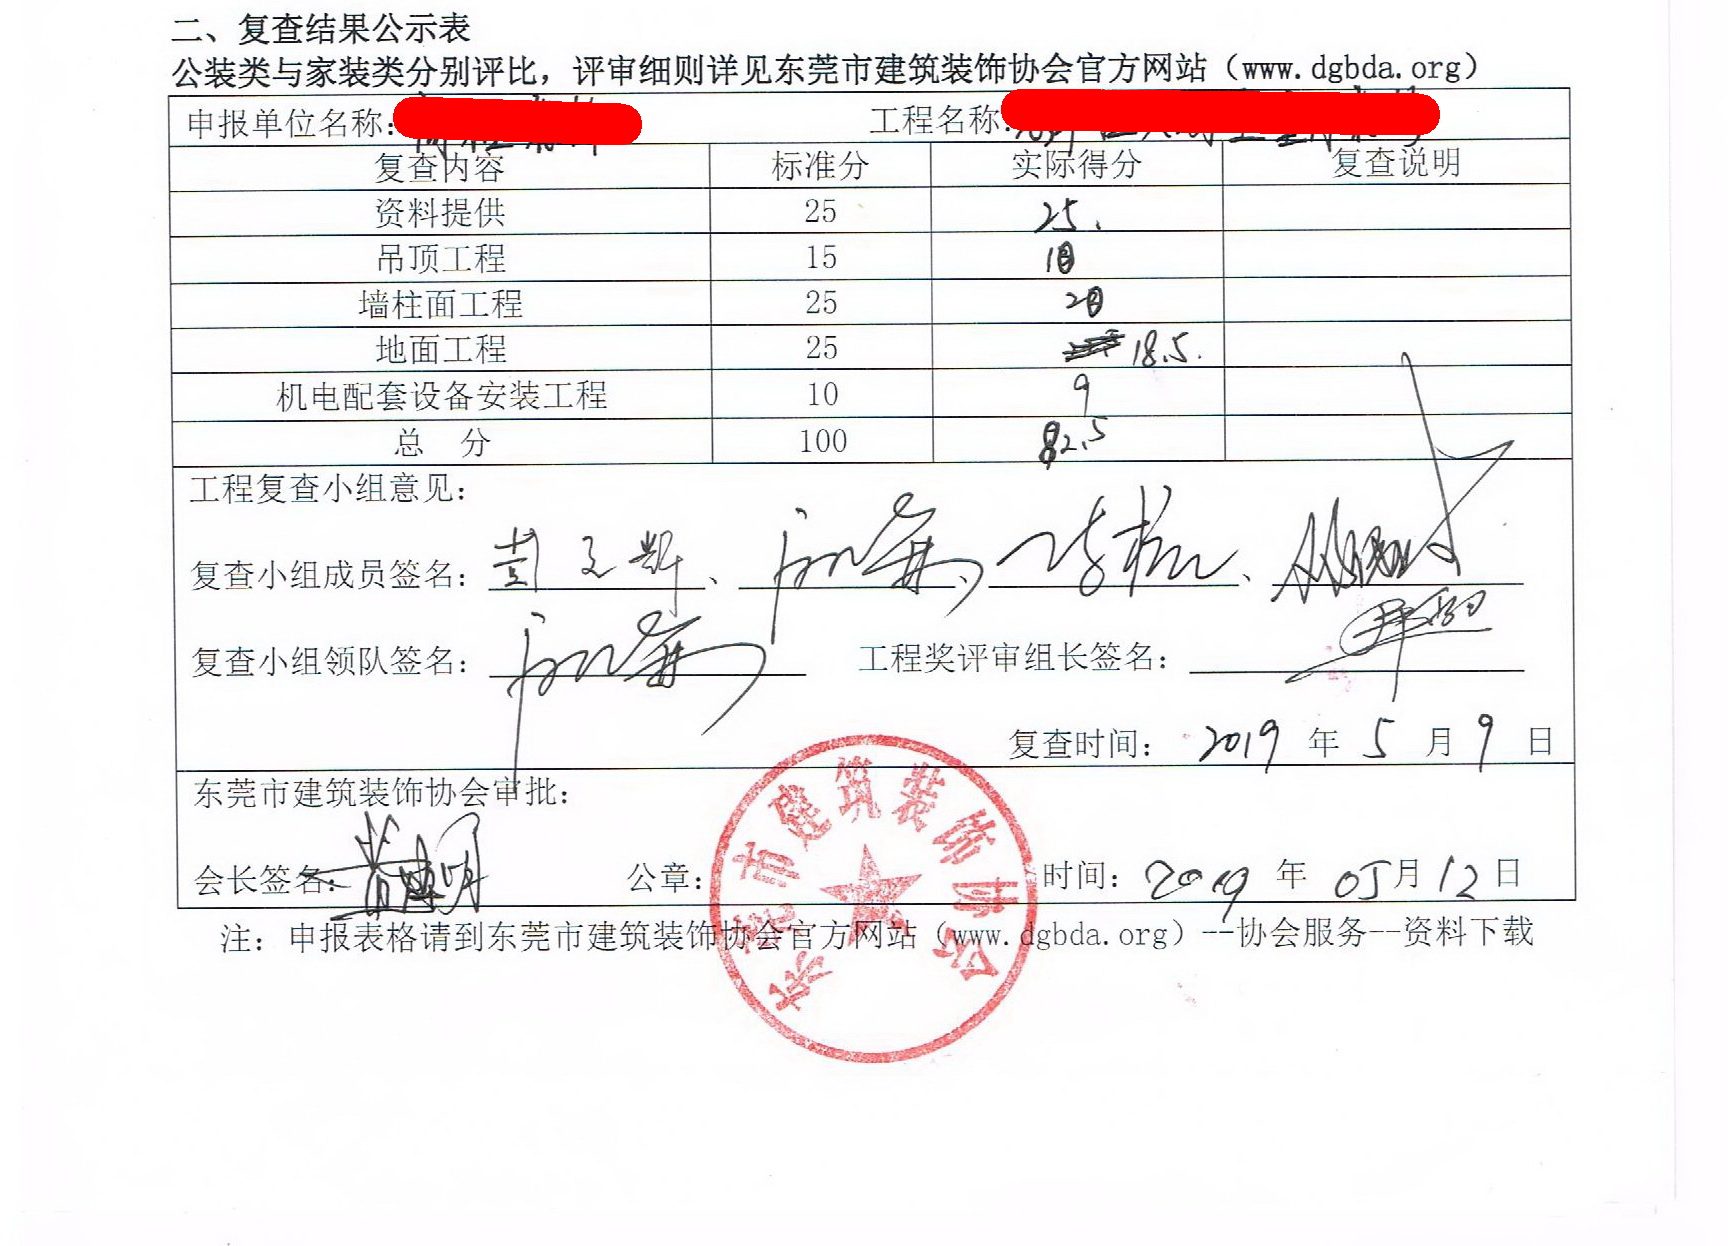 二、复查结果公示表
公装类与家装类分别评比，评审细则详见东莞市建筑装饰协会官方网站（www.dgbda.org）
申报单位名称： 工程名称：
复查内容 标准分 实际得分 复查说明
资料提供 25 25.
吊顶工程 15 10
墙柱面工程 25 20
地面工程 25 18.5.
机电配套设备安装工程 10 9
总 分 100 82.5
工程复查小组意见：
复查小组成员签名：彭文辉、 、 、
复查小组领队签名： 工程奖评审组长签名：
复查时间： 2019 年 5 月 9 日
东莞市建筑装饰协会审批：
会长签名： 公章： 时间：2019 年 05月 12日
东莞市建筑装饰协会
注：申报表格请到东莞市建筑装饰协会官方网站（www.dgbda.org）--协会服务--资料下载